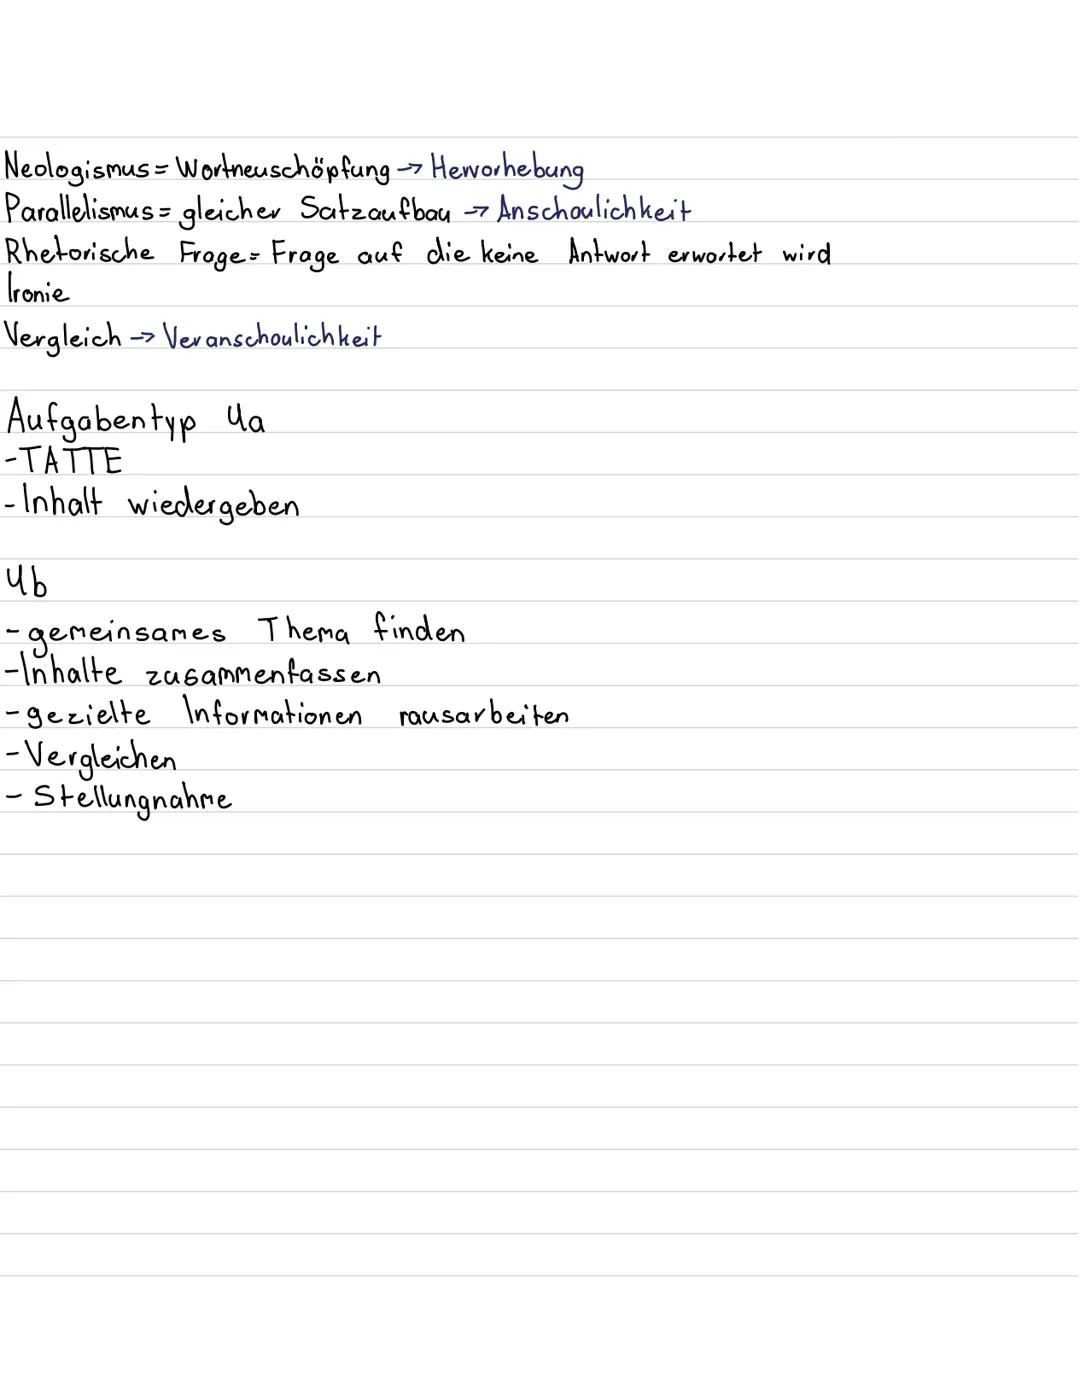 Neologismus = Wortneuschöpfung → Hervorhebung
Parallelismus = gleicher Satzaufbau → Anschaulichkeit
Rhetorische Frage = Frage auf die keine Antwort erwartet wird
Ironie
Vergleich → Veranschaulichkeit
Aufgabentyp 4a
-TATTE
-Inhalt wiedergeben
4b
-gemeinsames Thema finden
-Inhalte zusammenfassen
-gezielte Informationen rausarbeiten
-Vergleichen
-Stellungnahme